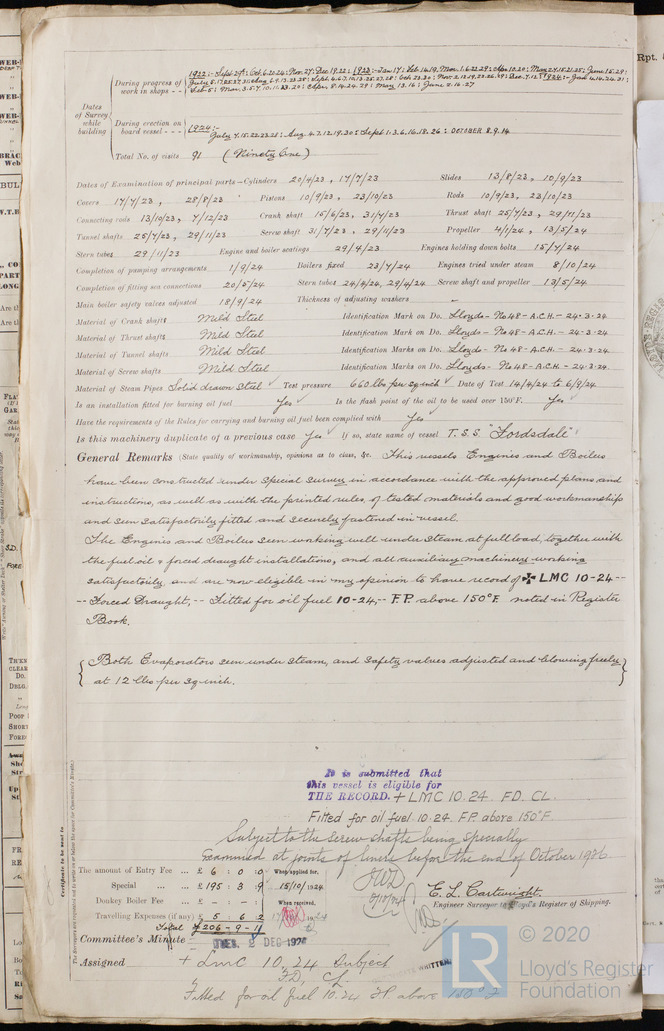 Rpt.
1922:- Sept 29: Oct. 6. 20. 24: Nov. 27: Dec. 19. 22: 1923:- Jan 17: Feb. 14. 19.
During progress of work in shops - -
Dates of Survey while building
During erection on board vessel - - -
1924:-
July 7. 15. 22. 23. 28: Aug. 4. 7. 12. 19. 30 Sept 1. 3. 6. 16. 18. 26: OCTOBER 8. 9. 14
Total No. of visits 91 (Ninety One)
Dates of Examination of principal parts—Cylinders 20/4/23, 17/7/23 Slides 13/8/23, 10/9/23
Covers 17/7/23, 28/8/23 Pistons 10/9/23, 23/10/23 Rods 10/9/23, 23/10/23
Connecting rods 13/10/23, 7/12/23 Crank shaft 15/6/23, 31/7/23 Thrust shaft 25/7/23, 29/11/23
Tunnel shafts 25/7/23, 29/11/23 Screw shaft 31/7/23, 29/11/23 Propeller 4/1/24, 13/5/24
Stern tubes 29/11/23 Engine and boiler seatings 29/4/23 Engines holding down bolts 15/7/24
Completion of pumping arrangements 1/9/24 Boilers fixed 23/7/24 Engines tried under steam 8/10/24
Completion of fitting sea connections 20/5/24 Stern tubes 24/4/24, 29/4/24 Screw shaft and propeller 13/5/24
Main boiler safety valves adjusted 18/9/24 Thickness of adjusting washers —
Material of Crank shafts Mild Steel Identification Mark on Do. Lloyds - No 48 - A.C.H. - 24-3-24
Material of Thrust shafts Mild Steel Identification Mark on Do. Lloyds - No 48 - A.C.H. - 24-3-24
Material of Tunnel shafts Mild Steel Identification Marks on Do. Lloyds - No 48 - A.C.H. - 24-3-24
Material of Screw shafts Mild Steel Identification Marks on Do. Lloyds - No 48 - A.C.H. - 24-3-24
Material of Steam Pipes Solid drawn Steel Test pressure 660 lbs per sq inch Date of Test 14/4/24 to 6/9/24
Is an installation fitted for burning oil fuel Yes Is the flash point of the oil to be used over 150°F. Yes
Have the requirements of the Rules for carrying and burning oil fuel been complied with Yes
Is this machinery duplicate of a previous case Yes If so, state name of vessel T.S.S. "Fordsdale"
General Remarks (State quality of workmanship, opinions as to class, &c. This vessels Engines and Boilers
have been constructed under special survey in accordance with the approved plans and
instructions, as well as with the printed rules, of tested materials and good workmanship
and seen satisfactorily fitted and securely fastened in vessel.
The Engines and Boilers seen working well under steam at full load, together with
the fuel oil & forced draught installations, and all auxiliary machinery working
satisfactorily, and are now eligible in my opinion to have record of ✠ LMC 10-24 --
-- Forced Draught, -- Fitted for oil fuel 10-24, -- F.P. above 150°F. noted in Register
Book.
{ Both Evaporators seen under steam, and safety valves adjusted and blowing freely }
at 12 lbs per sq inch.
It is submitted that
this vessel is eligible for
THE RECORD. + LMC 10.24. FD. CL.
Fitted for oil fuel 10.24. F.P. above 150°F.
Subject to the screw shafts being specially
examined at joints of liners before the end of October 1926
The amount of Entry Fee ... £ 6 : 0 : 0 When applied for,
Special ... ... £ 195 : 3 : 9 15/10/1924
Donkey Boiler Fee ... £ - : - : When received,
Travelling Expenses (if any) £ 5 : 6 : 2
Total £ 206 - 9 - 11
E. L. Cartwright.
Engineer Surveyor to Lloyd's Register of Shipping.
Committee's Minute TUES. 2 DEC 1924
Assigned + LMC 10.24 Subject
FD, CL
Fitted for oil fuel 10.24 FP above 150°F
WRITTEN.
© 2020
LR
Lloyd's Register
Foundation